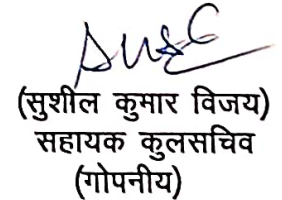 (सुशील कुमार विजय)
सहायक कुलसचिव
(गोपनीय)